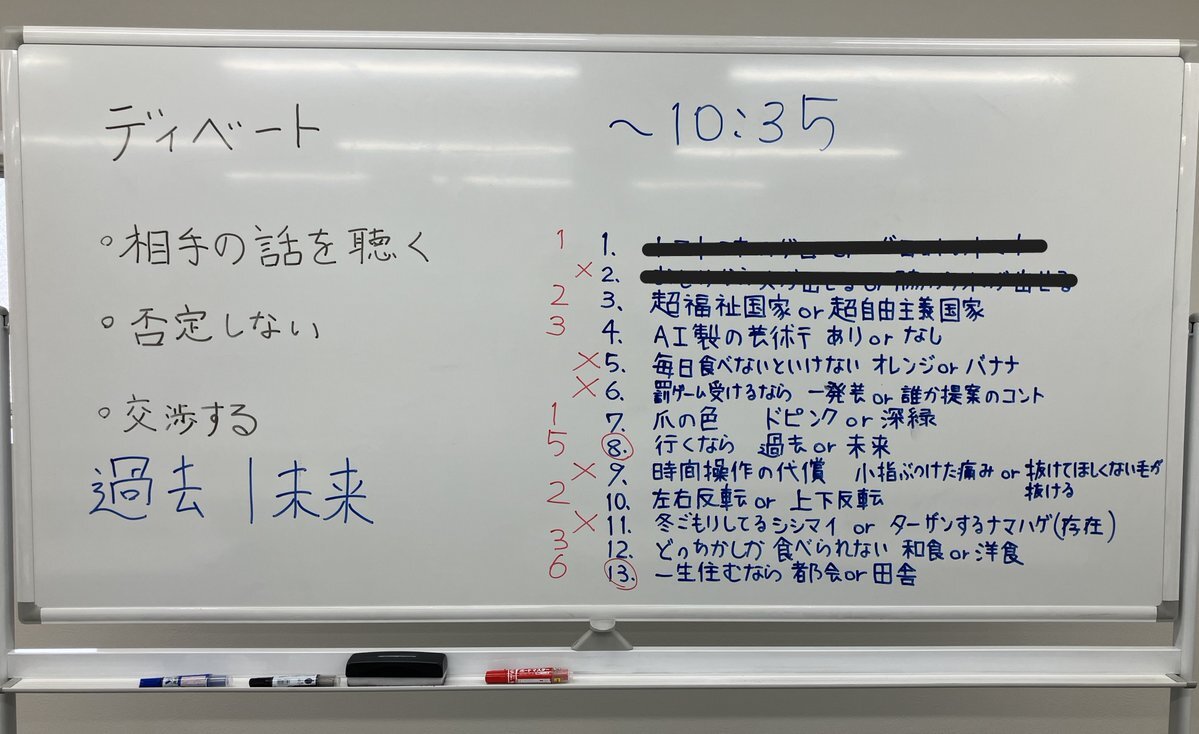 ディベート
～10:35
。相手の話を聴く
。否定しない
。交渉する
過去 | 未来
1 1.
× 2.
2 3. 超福祉国家 or 超自由主義国家
3 4. AI製の芸術テ ありor なし
×5. 毎日食べないといけない オレンジor バナナ
×6. 罰ゲーム受けるなら 一発芸 or 誰か提案のコント
1 7. 爪の色 ドピンク or 深緑
5 8. 行くなら 過去 or 未来
×9. 時間操作の代償 小指ぶつけた痛み or 抜けてほしくない毛が
抜ける
2 10. 左右反転 or 上下反転
×11. 冬ごもりしてるシシマイ or ターザンするナマハゲ(存在)
3 12. どっちかしか 食べられない 和食 or 洋食
6 13. 一生住むなら 都会or 田舎